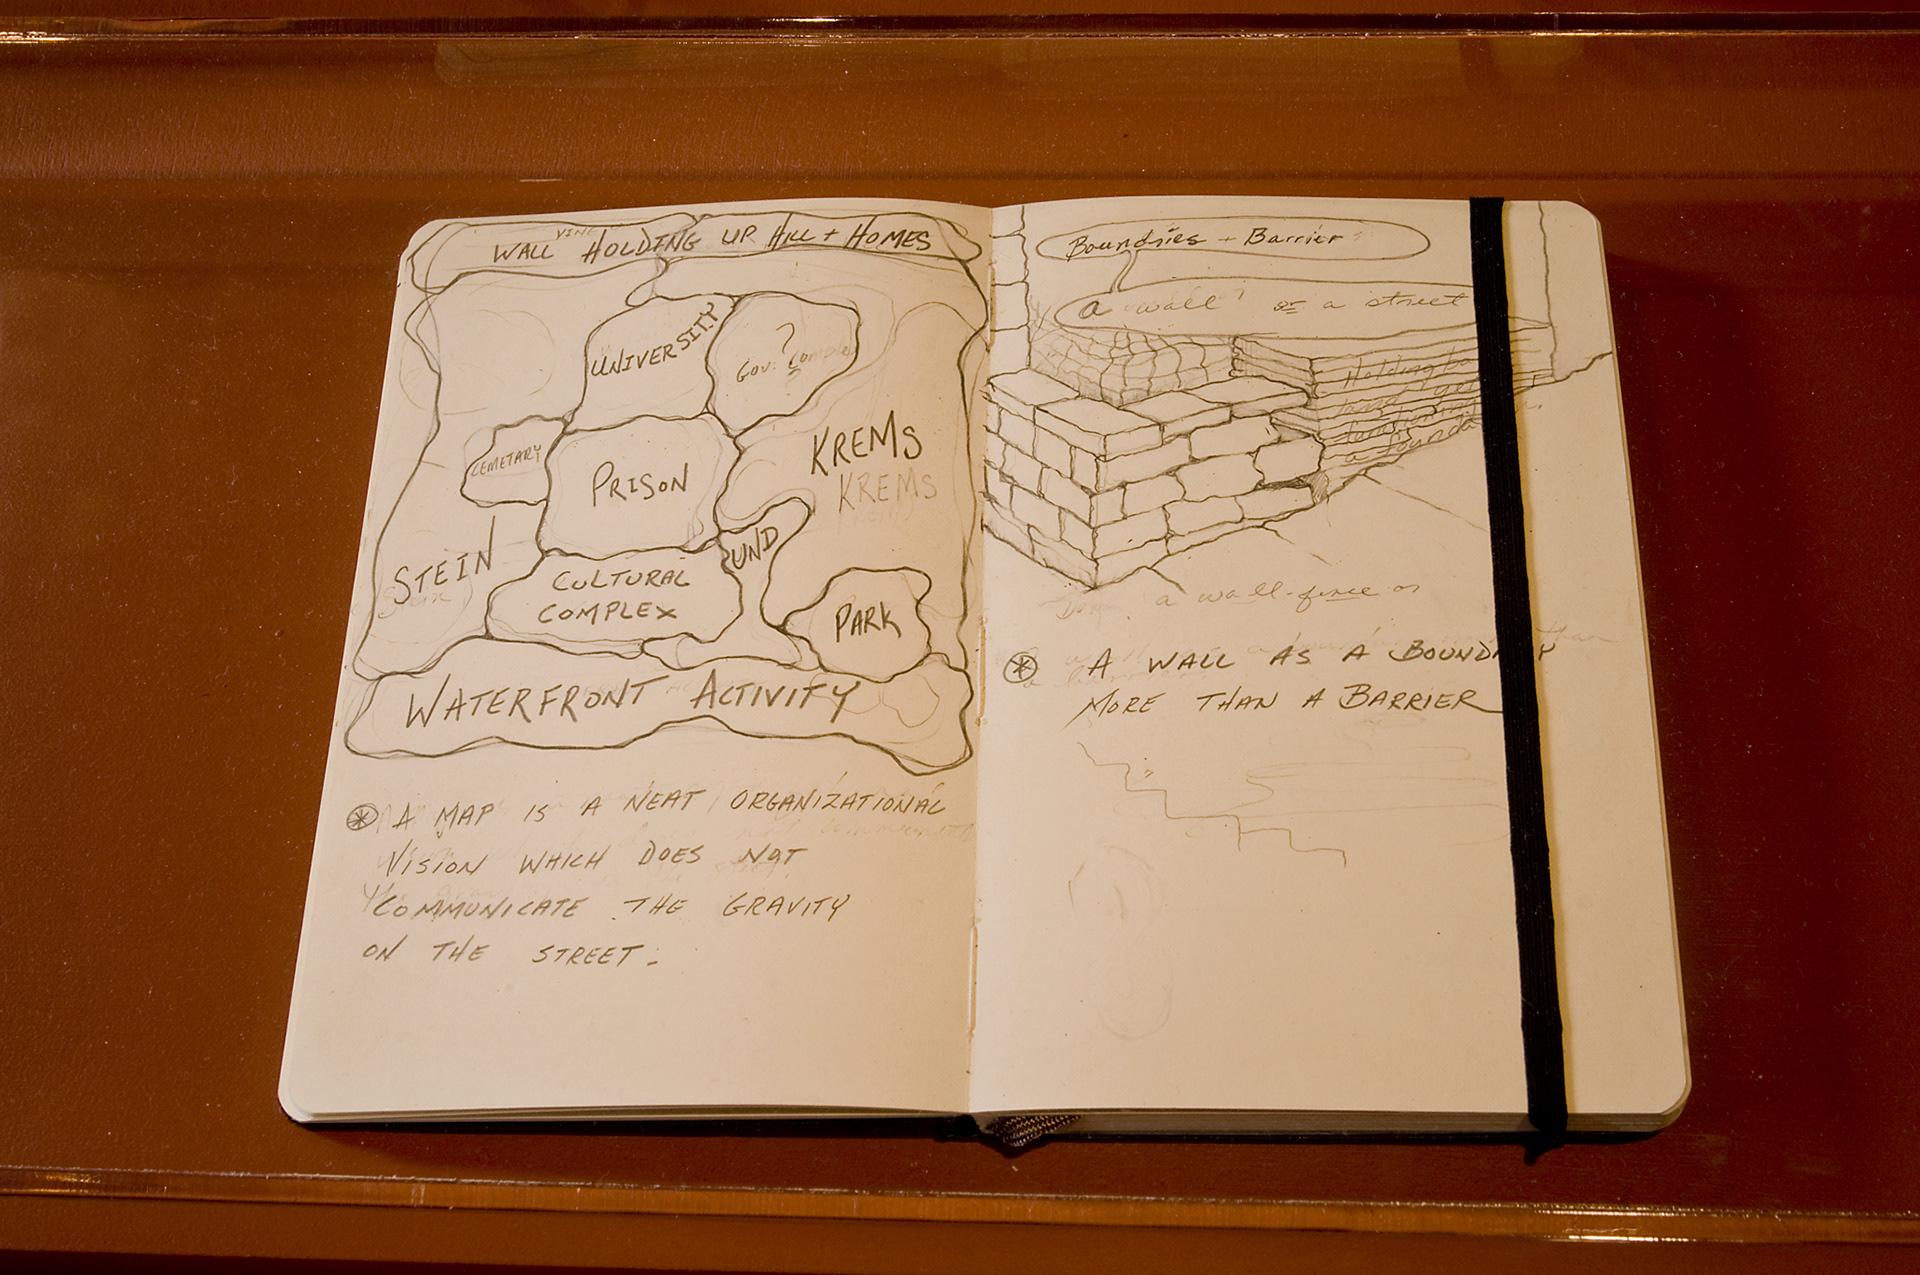 WALL VINE HOLDING UP HILL + HOMES
UNIVERSITY
?
Gov. Complex
CEMETARY
PRISON
KREMS
KREMS
STEIN
(Stein)
UND
CULTURAL
COMPLEX
PARK
WATERFRONT ACTIVITY
A MAP IS A NEAT ORGANIZATIONAL
VISION WHICH DOES NOT
COMMUNICATE THE GRAVITY
ON THE STREET.
Boundries + Barrier
a wall or a street
Holding
and
functioning
a
a wall-fence or
A WALL AS A BOUNDRY
MORE THAN A BARRIER